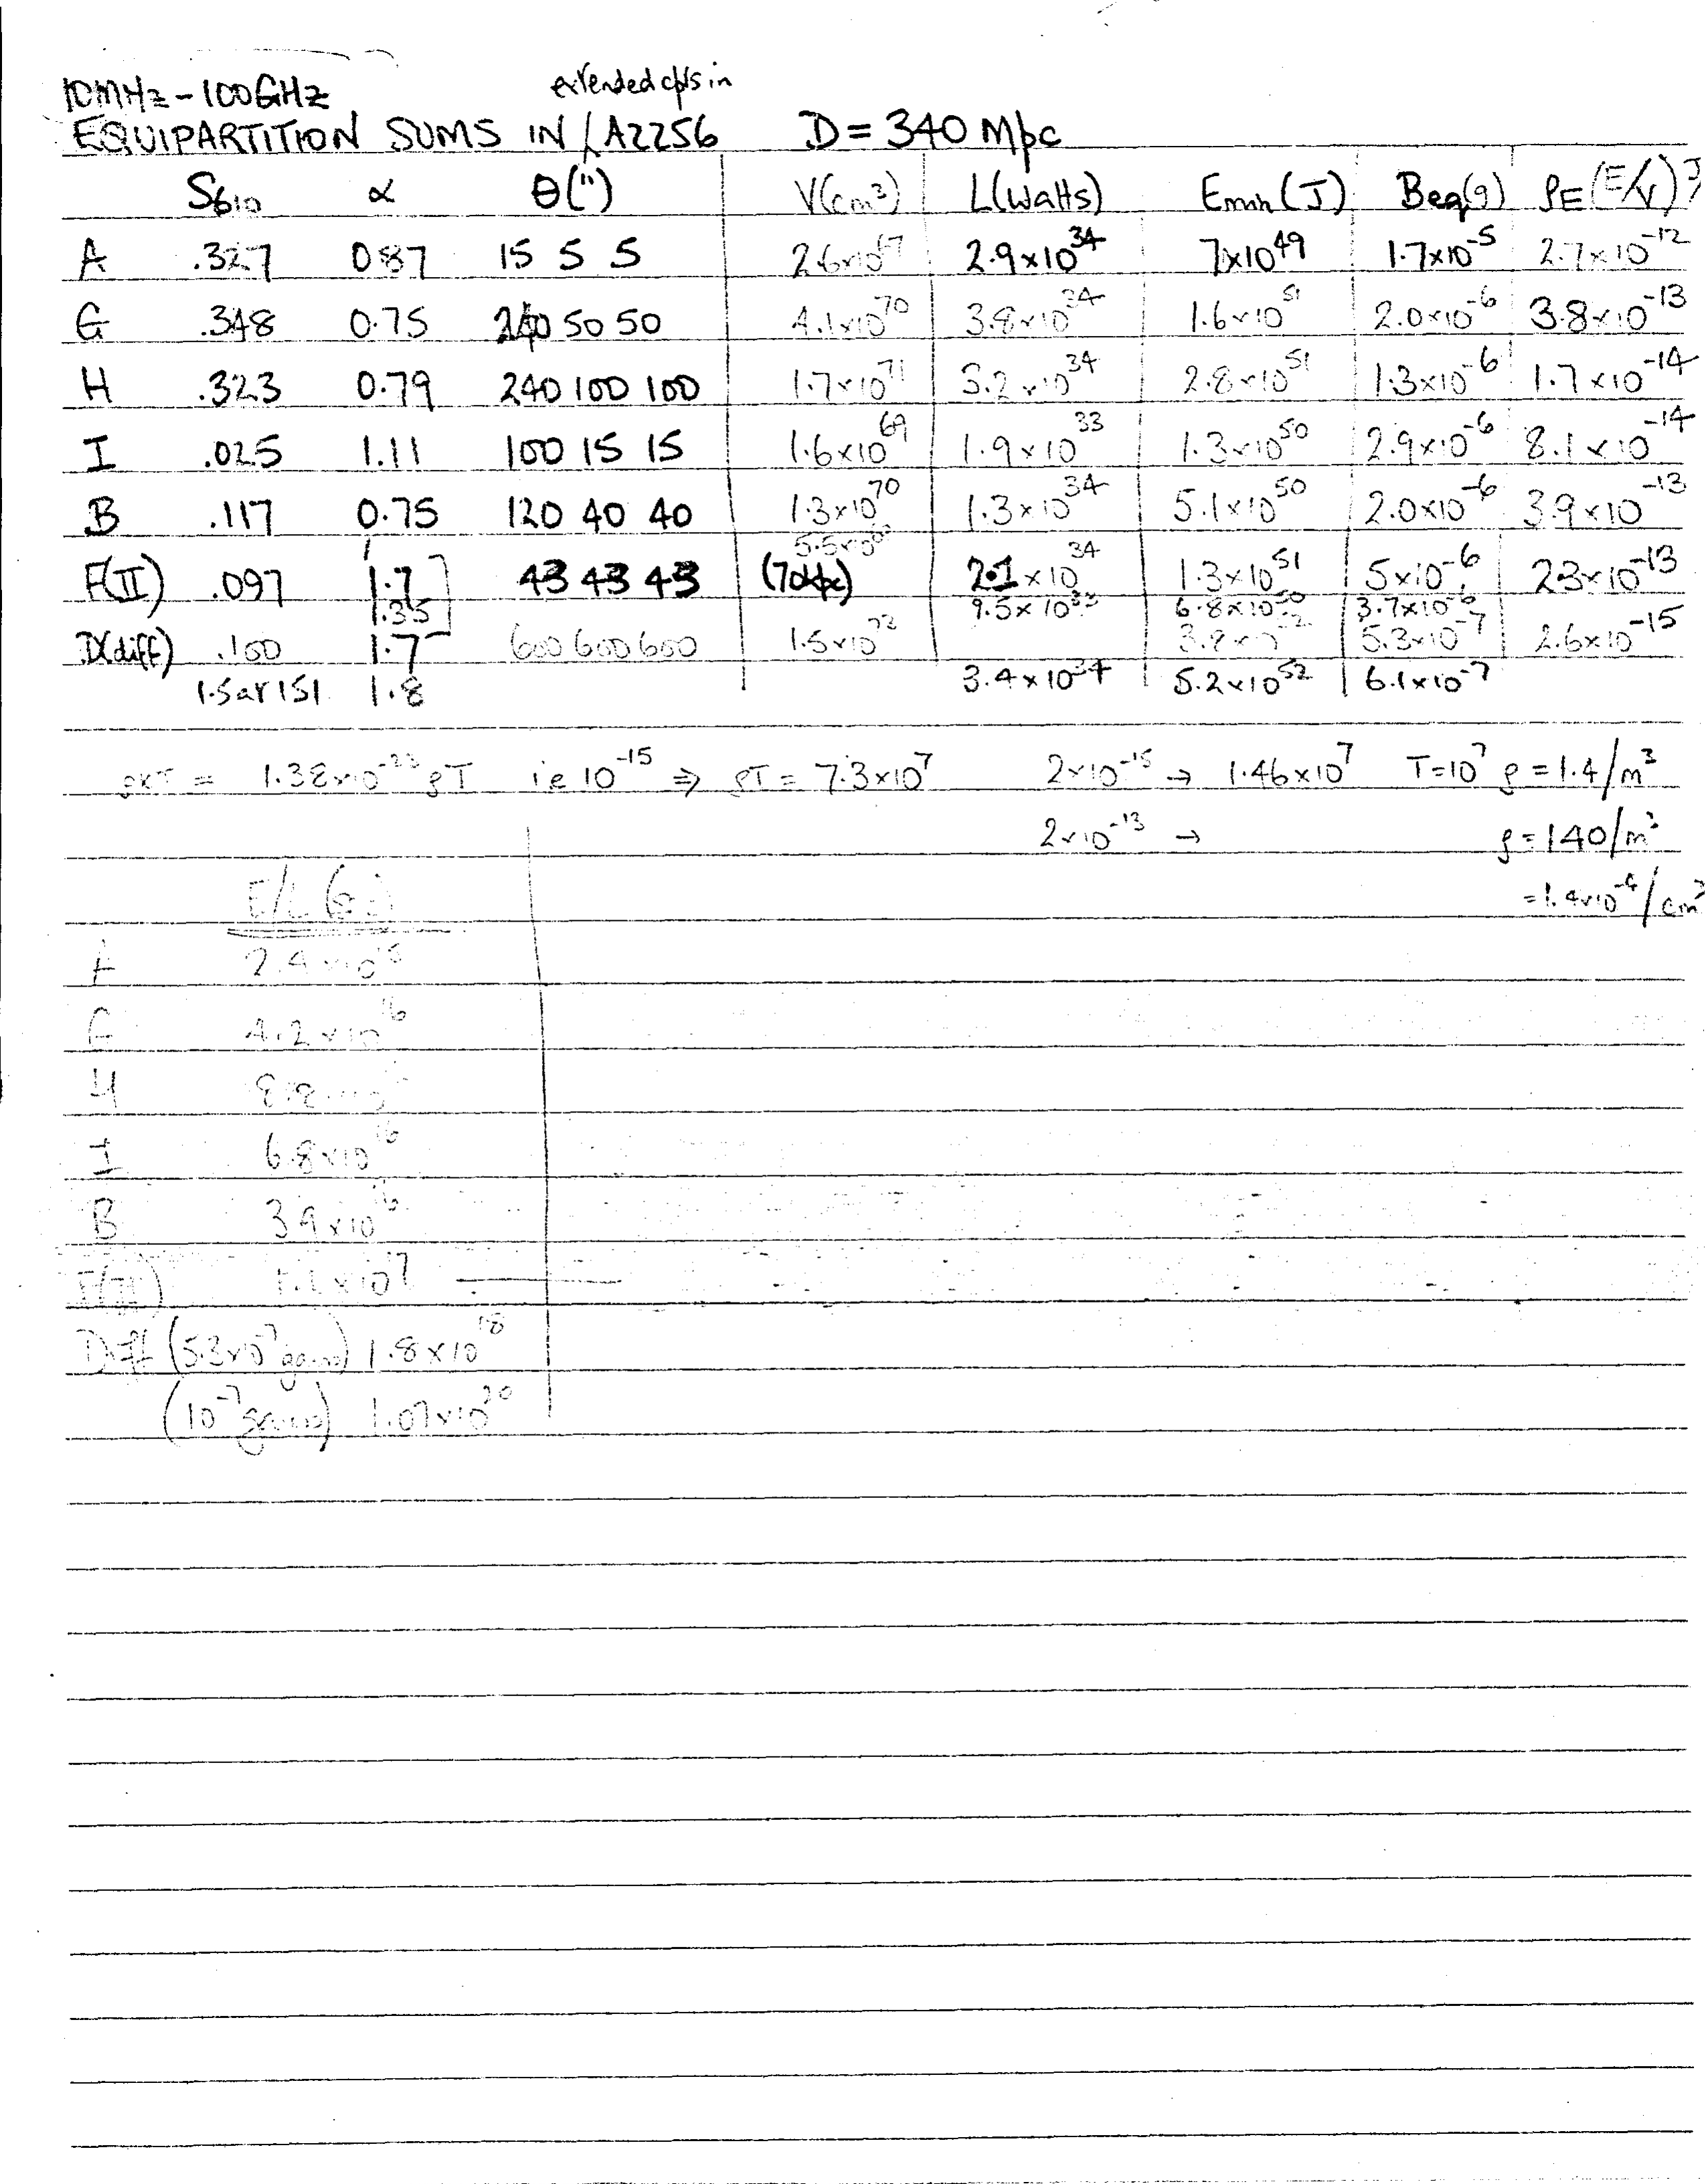 10MHz - 100GHz
extended cpts in
EQUIPARTITION SUMS IN / A2256 D = 340 Mpc
S610 α θ(") V(cm³) L(Watts) Emin (J) Beq(g) ρE (E/V) J
A .327 0.87 15 5 5 2.6×10⁶⁷ 2.9×10³⁴ 7×10⁴⁹ 1.7×10⁻⁵ 2.7×10⁻¹²
G .348 0.75 240 50 50 4.1×10⁷⁰ 3.8×10³⁴ 1.6×10⁵¹ 2.0×10⁻⁶ 3.8×10⁻¹³
H .323 0.79 240 100 100 1.7×10⁷¹ 3.2×10³⁴ 2.8×10⁵¹ 1.3×10⁻⁶ 1.7×10⁻¹⁴
I .025 1.11 100 15 15 1.6×10⁶⁹ 1.9×10³³ 1.3×10⁵⁰ 2.9×10⁻⁶ 8.1×10⁻¹⁴
B .117 0.75 120 40 40 1.3×10⁷⁰ 1.3×10³⁴ 5.1×10⁵⁰ 2.0×10⁻⁶ 3.9×10⁻¹³
F(II) .097 1.7 43 43 43 (70kpc) 2.1×10³⁴ 1.3×10⁵¹ 5×10⁻⁶ 2.3×10⁻¹³
1.35 9.5×10³³ 6.8×10⁵⁰ 3.7×10⁻⁶
D(diff) .100 1.7 600 600 600 1.5×10⁷² 5.3×10⁻⁷ 2.6×10⁻¹⁵
1.5 at 151 1.8 3.4×10³⁴ 5.2×10⁵² 6.1×10⁻⁷
ρKT = 1.38×10⁻²³ ρT ie 10⁻¹⁵ ⇒ ρT = 7.3×10⁷ 2×10⁻¹⁵ → 1.46×10⁷ T=10⁷ ρ = 1.4/m³
2×10⁻¹³ → ρ = 140/m³
= 1.4×10⁻⁴/cm³
E/L
A
G 4.2×10¹⁶
H
I 6.8×10¹⁶
B 3.9×10¹⁶
F(II) 1.1×10¹⁷
Diff (5.3×10⁻⁷ gauss) 1.8×10¹⁸
(10⁻⁷ gauss) 1.07×10²⁰